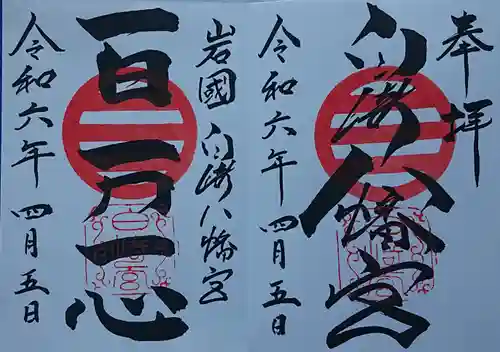 奉拝
白崎八幡宮
令和六年 四月五日
岩國 白崎八幡宮
百万一心
令和六年 四月五日